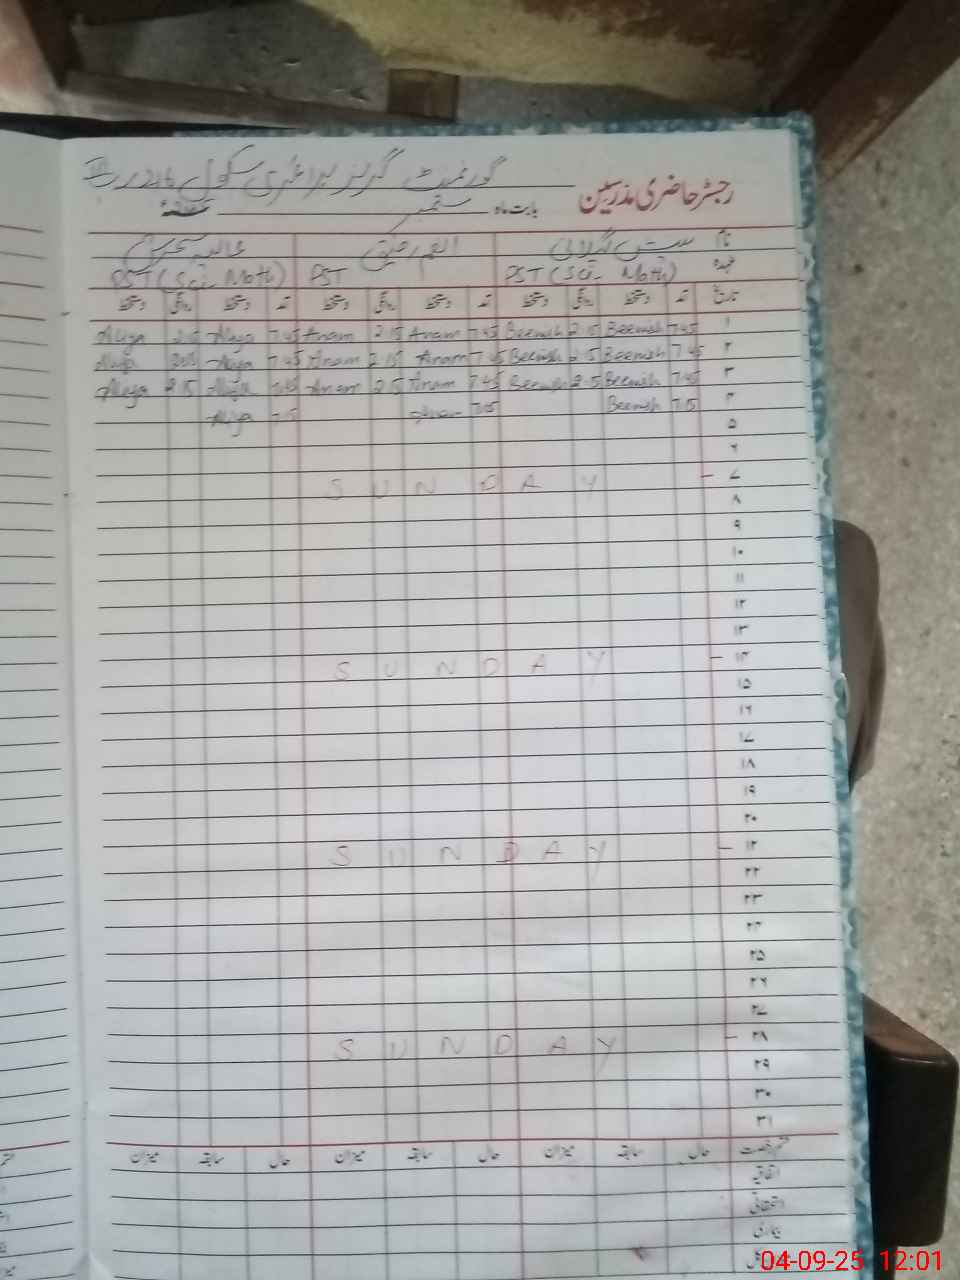 گورنمنٹ گرلز پرائمری سکول
رجسٹر حاضری مدرسین
بابت ماہ ستمبر
نام
عہدہ PST (Sci Math) PST PST (Sci Math)
تاریخ آمد دستخط روانگی دستخط آمد دستخط روانگی دستخط آمد دستخط روانگی دستخط
۱ 7:45 Beenish 2:15 Beenish 7:45 Anam 2:15 Anam 7:45 Aliya 2:15 Aliya
۲ 7:45 Beenish 2:15 Beenish 7:45 Anam 2:15 Anam 7:45 Aliya Aliya
۳ 7:45 Beenish 2:15 Beenish 7:45 Anam 2:15 Anam 7:45 Aliya 2:15 Aliya
۴ 7:15 Beenish 7:15 Anam 7:15 Aliya
۵
۶
۷ SUNDAY
۸
۹
۱۰
۱۱
۱۲
۱۳
۱۴ SUNDAY
۱۵
۱۶
۱۷
۱۸
۱۹
۲۰
۲۱ SUNDAY
۲۲
۲۳
۲۴
۲۵
۲۶
۲۷
۲۸ SUNDAY
۲۹
۳۰
۳۱
قسم رخصت حال سابقہ میزان حال سابقہ میزان حال سابقہ میزان
اتفاقیہ
استحقاقی
بیماری
04-09-25 12:01